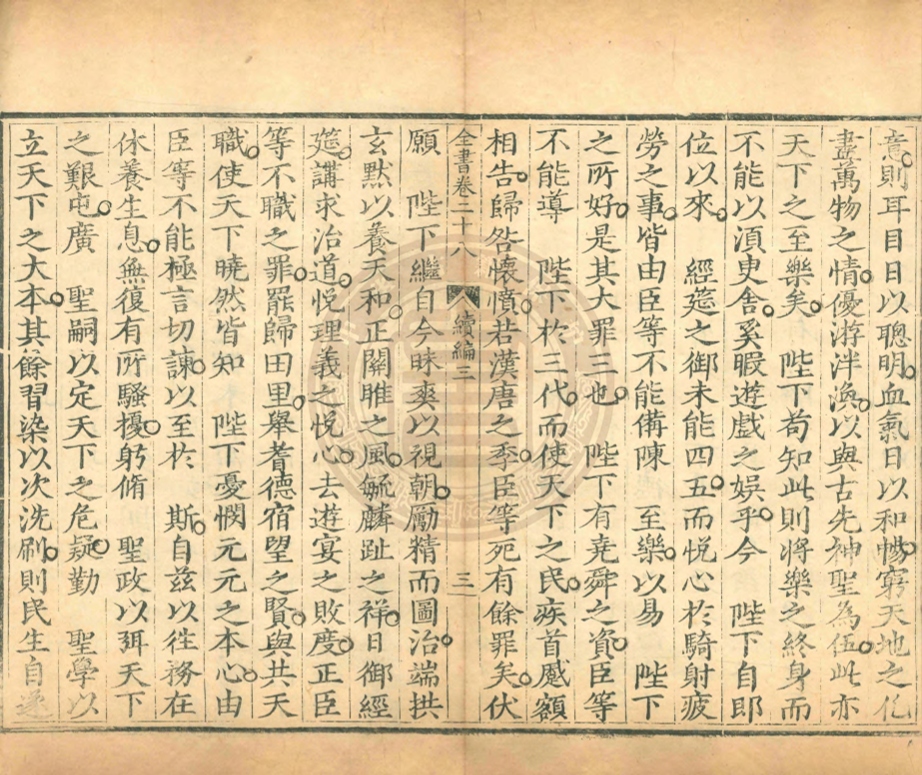 意則耳目日以聰明血氣日以和暢窮天地之化
盡萬物之情優游泮渙以與古先神聖為伍此亦
天下之至樂矣 陛下苟知此則將樂之終身而
不能以湏臾舍奚暇遊戲之娛乎今 陛下自即
位以來 經筵之御未能四五而悦心於騎射疲
勞之事皆由臣等不能備陳 至樂以易 陛下
之所好是其大罪三也 陛下有堯舜之資臣等
不能導 陛下於三代而使天下之民疾首蹙額
相告歸咎懷憤若漢唐之季臣等死有餘罪矣伏
全書卷二十八 續編三 三
願 陛下繼自今昧爽以視朝勵精而圖治端拱
玄默以養天和正關雎之風毓麟趾之祥日御經
筵講求治道悦理義之悦心去遊宴之敗度正臣
等不職之罪罷歸田里舉耆德宿望之賢與共天
職使天下曉然皆知 陛下憂憫元元之本心由
臣等不能極言切諫以至於 斯自茲以徃務在
休養生息無復有所騷擾躬脩 聖政以弭天下
之艱屯廣 聖嗣以定天下之危疑勤 聖學以
立天下之大本其餘習染以次洗刷則民生自遂